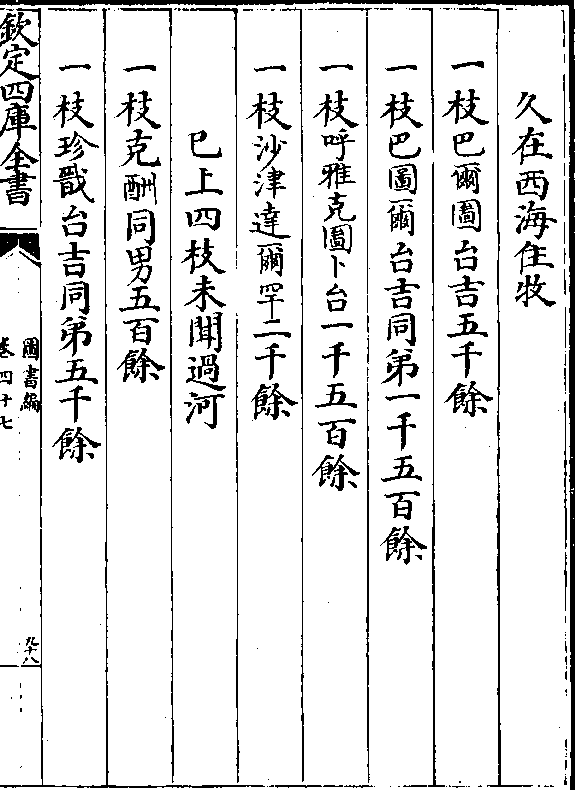 久在西海住牧
一枝巴爾圖台吉五千餘
一枝巴圖爾台吉同弟一千五百餘
一枝呼雅克圖卜台一千五百餘
一枝沙津達爾罕二千餘
已上四枝未聞過河
一枝克酬同男五百餘
一枝珍戩台吉同弟五千餘
欽定四庫全書
圖書編
卷四十七
九十八